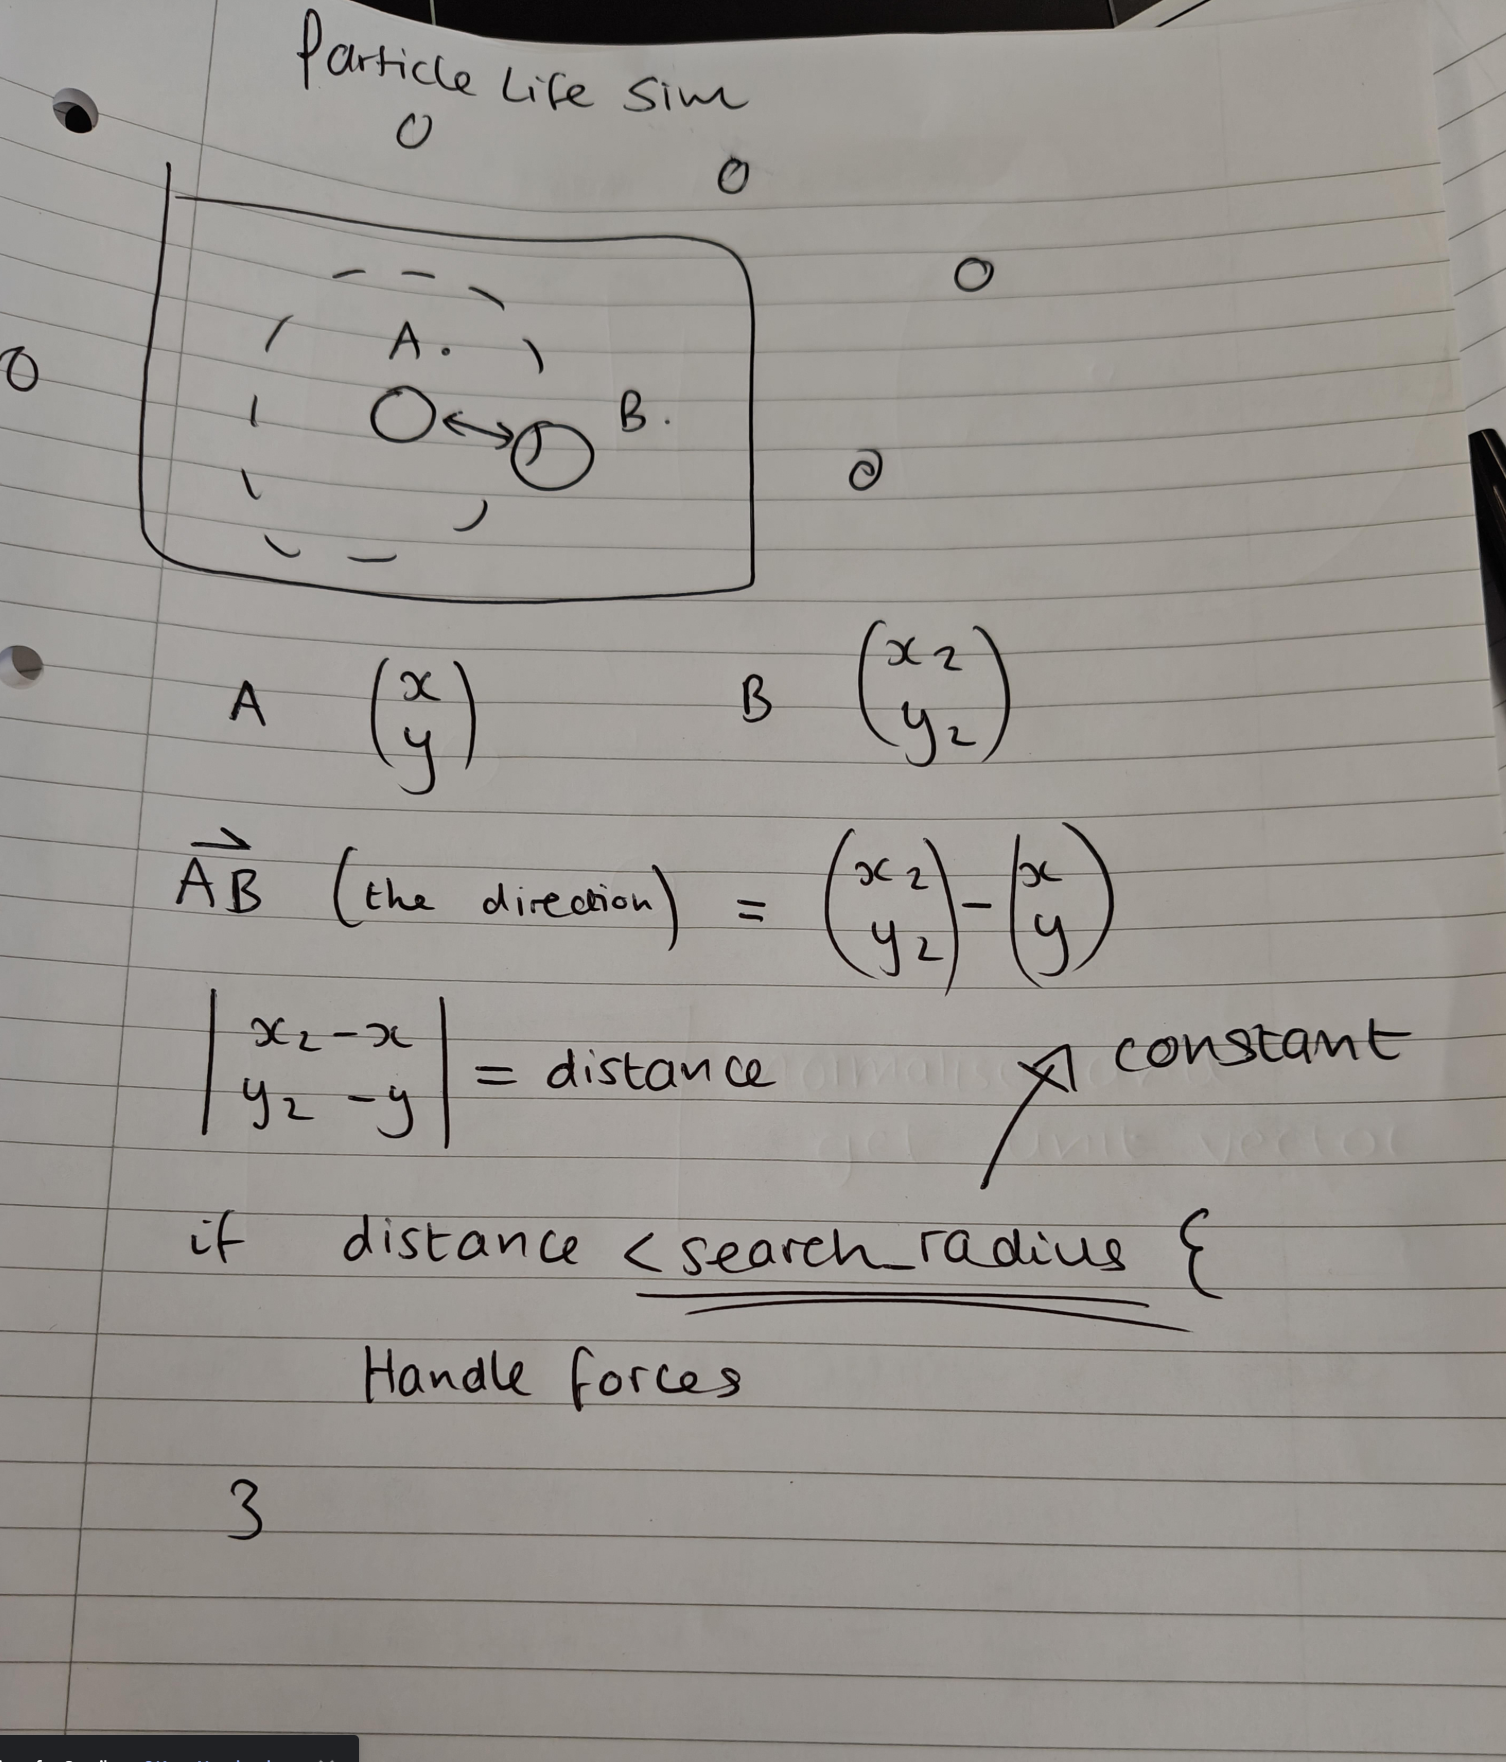 Particle Life Sim
A.
B.
A (x y) B (x2 y2)
AB (the direction) = (x2 y2) - (x y)
|x2 - x y2 - y| = distance
constant
if distance < search_radius {
Handle forces
}